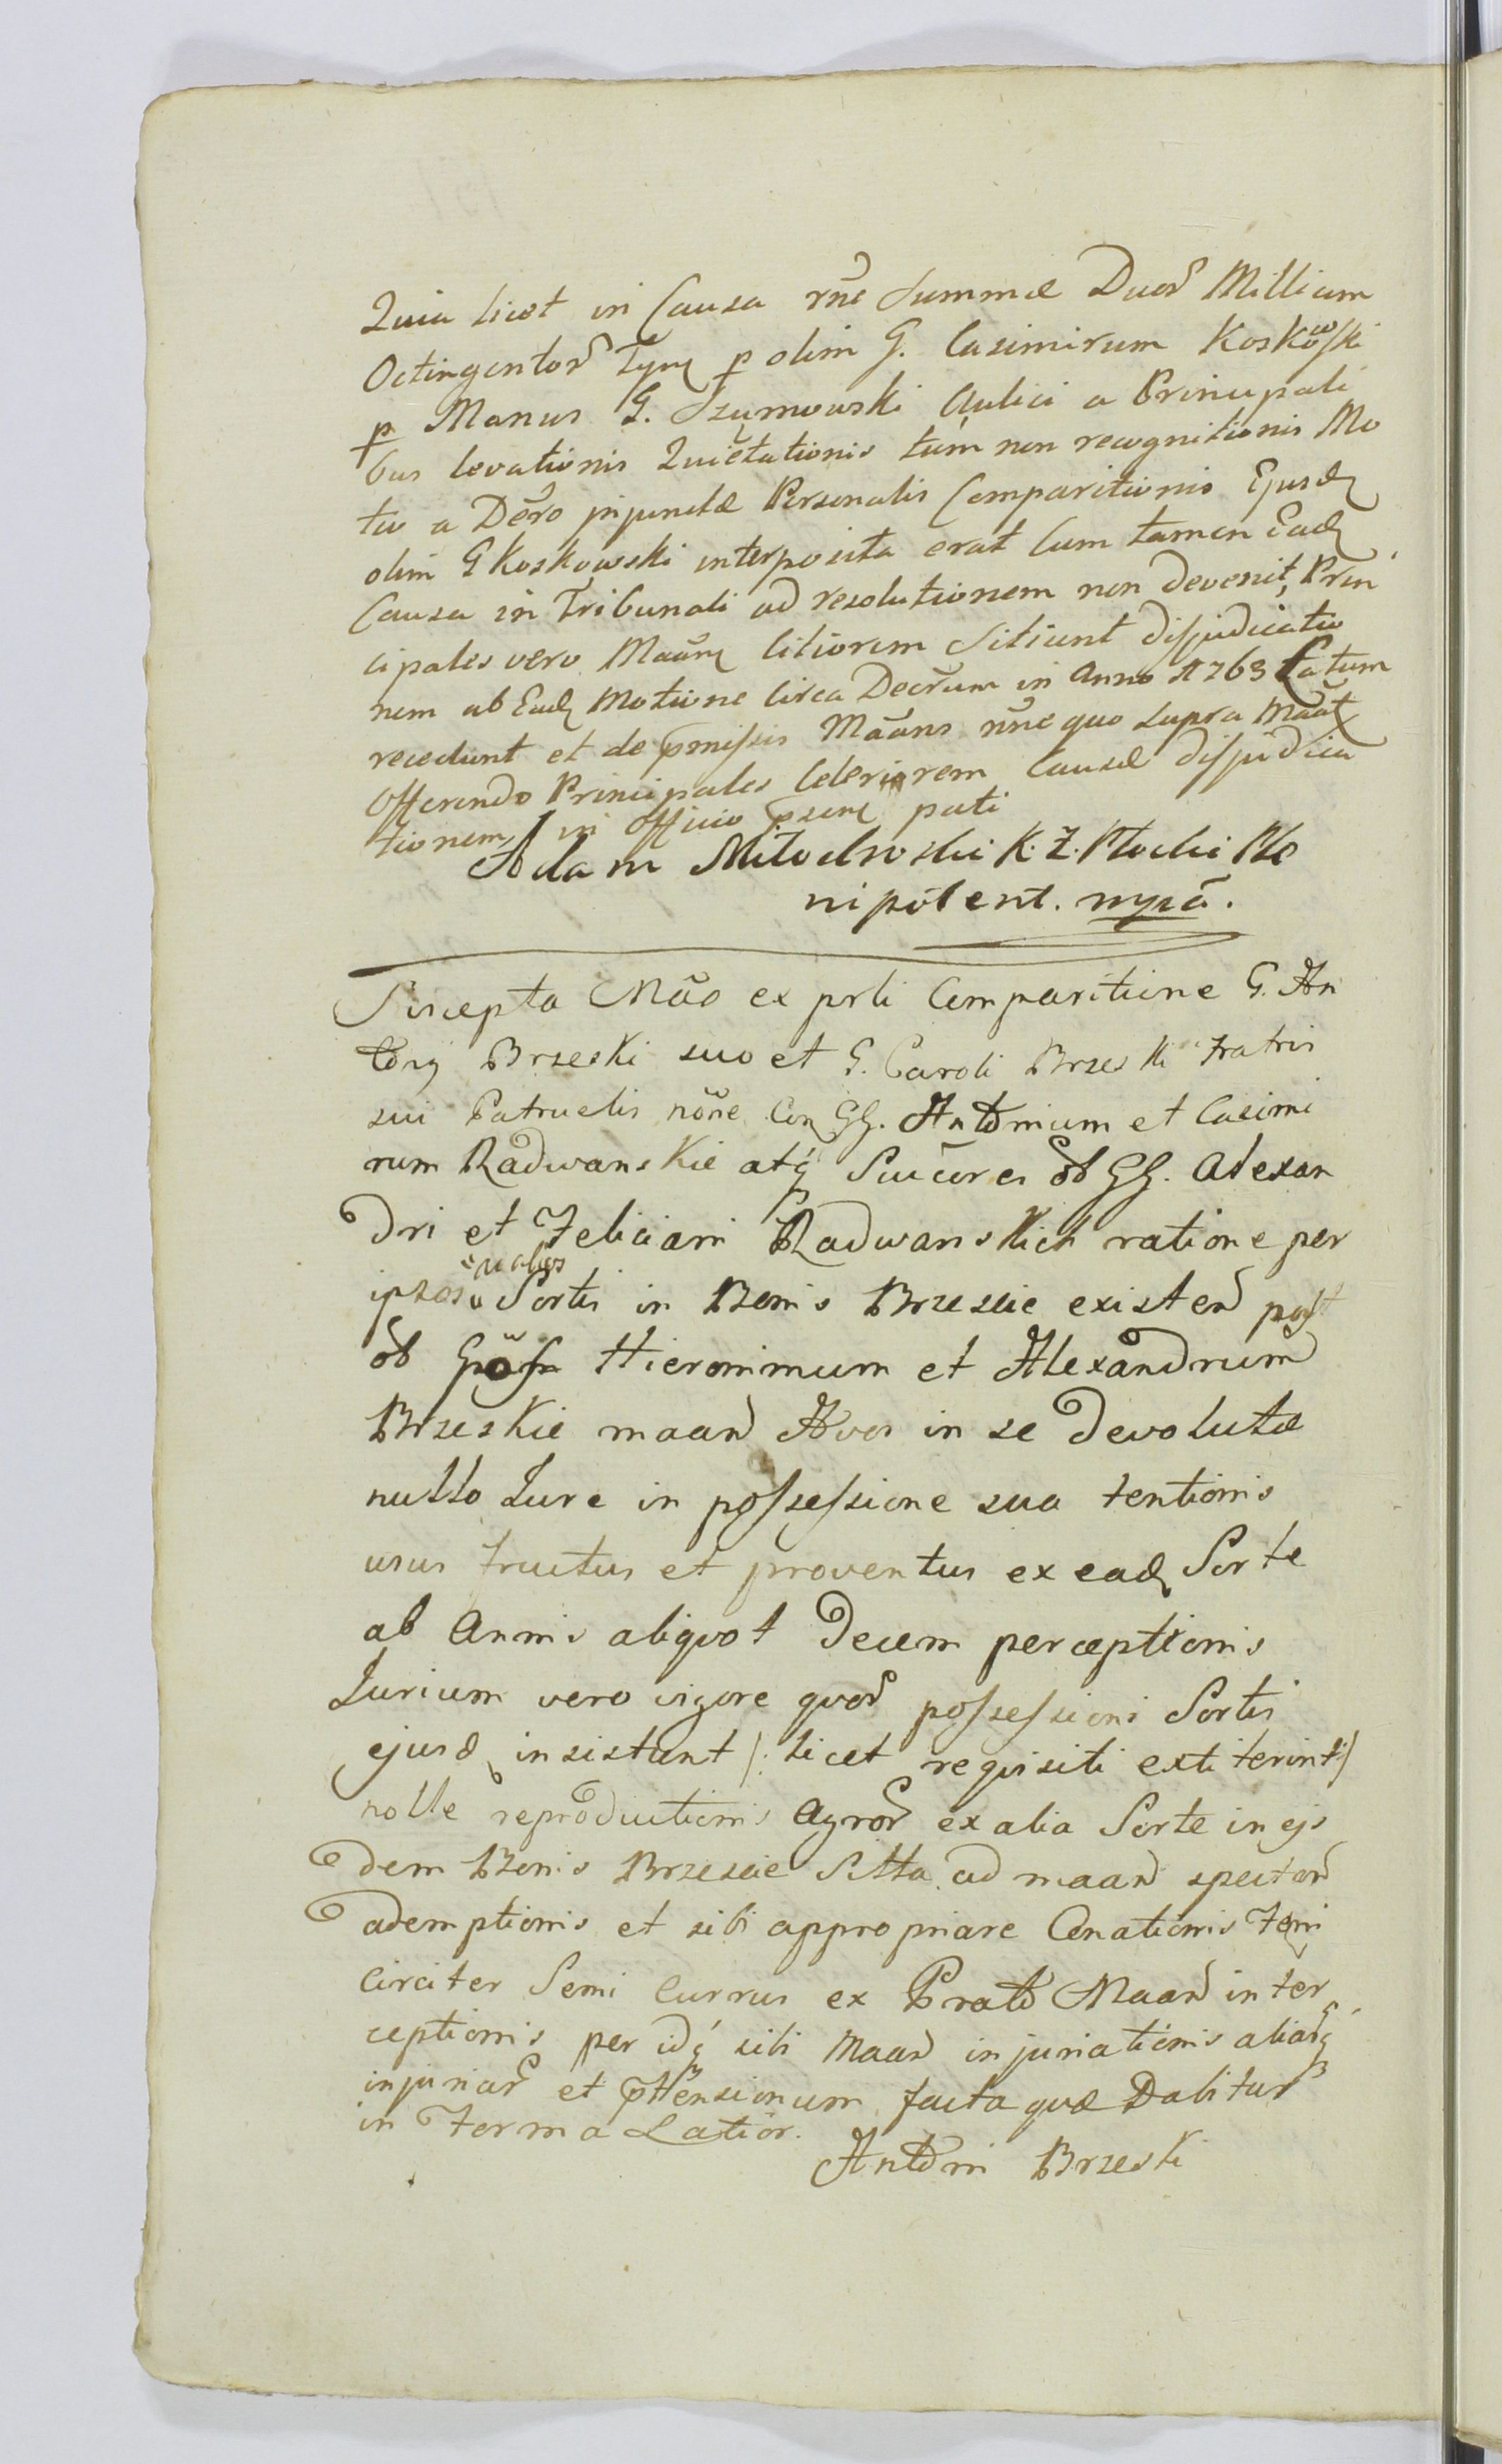 Quia licet in Causa rñe Summæ Duor Millium
Octingentor Tym p olim G. Casimirum Koskowski
p Manus G. Szumowski Aulici a Principali
bus levationis Quietationis tum non recognitionis Mo
tio a Decro injunctæ Personalis Comparitionis Ejusd
olim G Koskowski interposita erat Cum tamen Ead
Causa in Tribunali ad resolutionem non devenit, Prin
cipales vero Maam citiorem sitiunt disjudicatio
nem ab Ead Motione circa Decrum in Anno 1763 Latum
recedunt et de pmissis Maans nñc quo supra Maat
Offerendo Principales Celeriorem Causæ disjudica
tionem in Officio psem pati
Adam Miłodroski K. Z. Płocki Ple
nipotent. mpã.
Suscepta Mão ex prli Comparitione G. An
tonij Brzeski suo et G. Caroli Brzeski Fratris
sui Patruelis nõne Con GG. Antonium et Casimi
rum Radwanskie atq Succores ob GG. Alexan
dri et Feliciani Radwanskich ratione per
ipsos Sortis in Bonis Brzescie existen post
ob Hieronimum et Alexandrum
Brzeskie maan Avos in se devolutæ
nullo Jure in possessione sua tentionis
usus fructus et proventus ex ead Sorte
ab Annis aliquot decem perceptionis
Jurium vero vigore quor possessioni Sortis
ejusd insistunt /: licet requisiti extiterint :/
nolle reproductionis Agror ex alia Sorte in ejs
dem Bonis Brzescie Sitta ad maan spectan
ademptionis et sibi appropriare Conationis Feni
circiter Semi currus ex Prato Maan inter
ceptionis per idq sibi Maan injuriationis aliarq
injuriar et pttensionum facta quæ Dabitur
in Forma Latior.
Antoni Brzeski